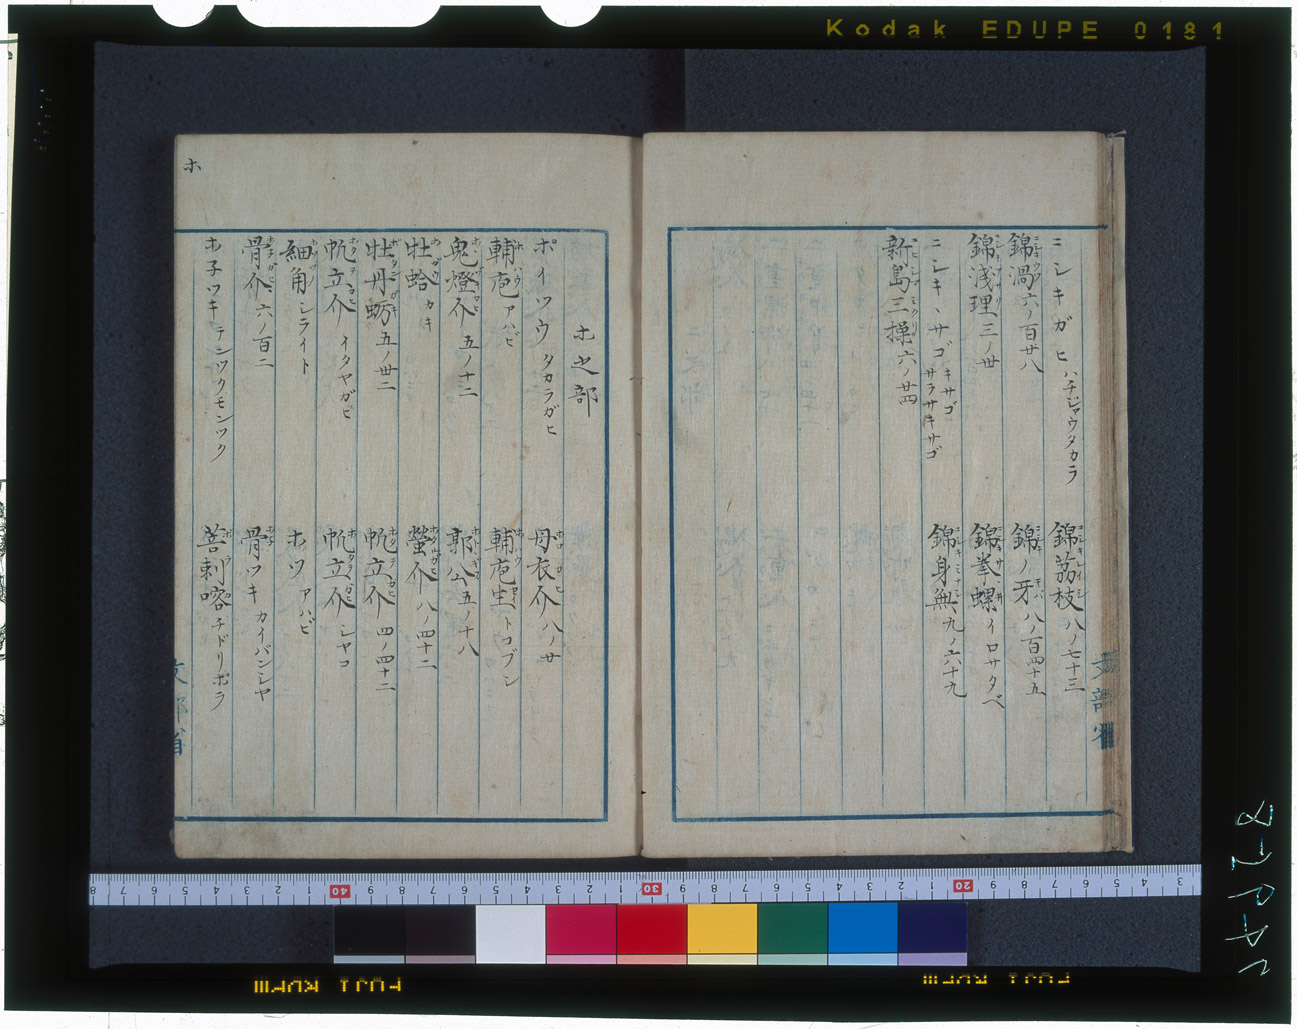 Kodak EDUPE 0181
ニシキガヒ ハチジヤウタカラ
錦茘枝 八ノ七十三
錦渦 六ノ百廿八
錦ノ牙 八ノ百四十五
錦淺理 三ノ卅
錦拳螺 イロサタベ
ニシキヽサゴ キサゴ サラサキサゴ
錦身無 九ノ六十九
新島三操 六ノ廿四
文部省
ホ之部
ポイツウ タカラガヒ
母衣介 八ノ廿
輔庖 アハビ
輔庖生 トコブシ
鬼燈介 五ノ十二
郭公 五ノ十八
牡蛤 カキ
螢介 八ノ四十二
牡丹蛎 五ノ卅二
帆立介 四ノ四十二
帆立介 イタヤガヒ
帆立介 シヤコ
細角 シライト
ホツ アハビ
骨介 六ノ百二
骨ツキ カイバンシヤ
ホ子ツキ テンツクモンツク
菩刺喀 チドリボラ
ホ
文部省
FUJI
FUJI